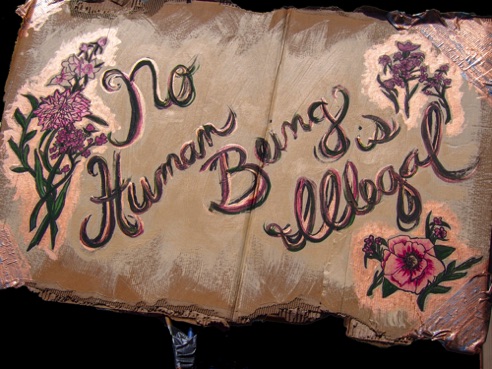 No
Human Being is
Illegal